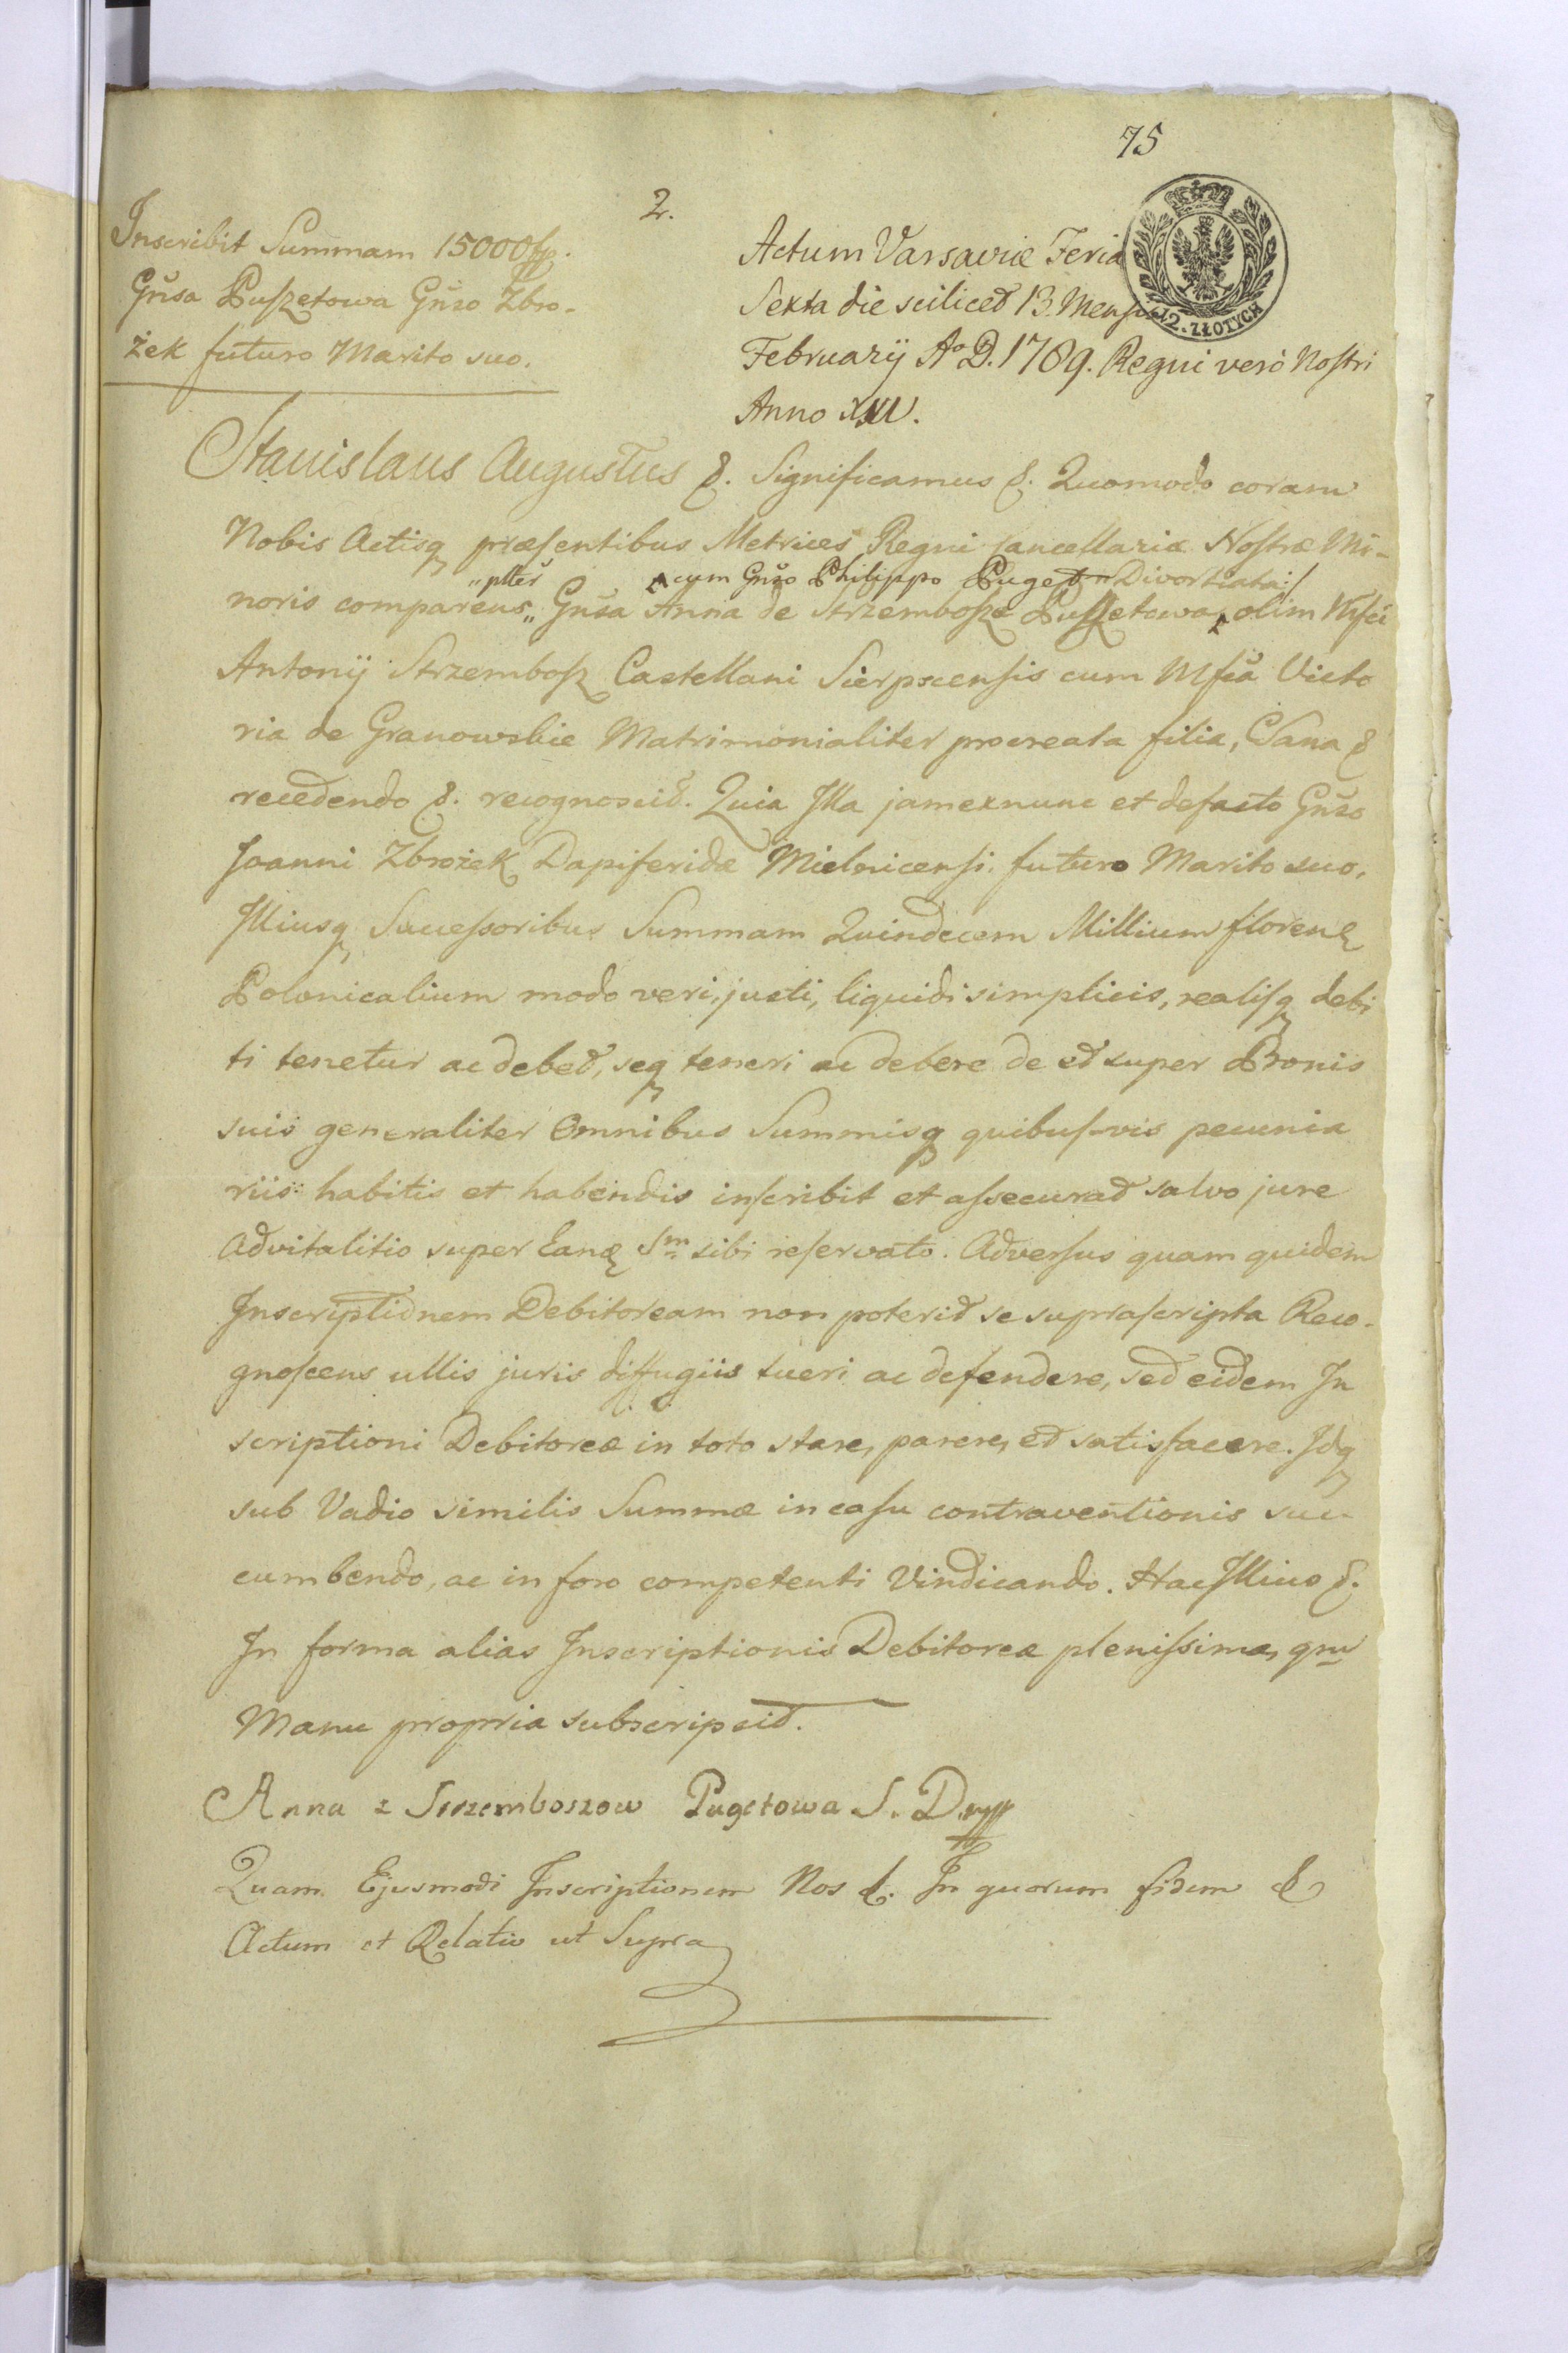 75
2.
Inscribit Summam 15000 fp.
Gňsa Puſzetowa Gňso Zbro-
żek futuro Marito suo.
Actum Varsaviæ Feria
Sexta die scilicet 13. Mensis
February A° D. 1789. Regni verò Noſtri
Anno XXV.
12. ZŁOTYCH
Stanislaus Augustus &. Significamus &. Quomodo coram
Nobis Actisq præſentibus Metrices Regni Cancellariæ Noſtræ Mi-
"plter cum Gňso Philippo Puget Divortiata:/
noris comparens" Gňsa Anna de Strzemboſze Puſzetowa olim Mſci
Antonÿ Strzemboſz Castellani Sierpscenſis cum Mſca Victo
ria de Granowskie Matrimonialiter procreata filia, Sana &
recedendo &. recognoscit. Quia Illa jamexnunc et defacto Gňso
Joanni Zbrożek Dapiferidæ Mielnicenſi futuro Marito suo,
Illiusq Succeſsoribus Summam Quindecem Millium floren
Polonicalium modo veri, justi, liquidi simplicis, realiſq debi
ti tenetur ac debet, seq teneri ac debere de et super Bonis
suis generaliter Omnibus Summisq quibuſ-vis pecunia
riis habitis et habendis inſcribit et aſsecurat salvo jure
Advitalitio super Eand Sm sibi reſervato. Adverſus quam quidem
Inscriptionem Debitoream non poterit se supraſcripta Reco-
gnoſcens ullis juris diffugiis tueri ac defendere, sed eidem In
scriptioni Debitoreæ in toto stare, parere, et satisfacere. Idq
sub Vadio similis Summæ in caſu contraventionis suc
cumbendo, ac in foro competenti Vindicando. Hac Illius &.
In forma alias Inscriptionis Debitoreæ pleniſsima, qm
Manu propria subscripsit.
Anna z Strzemboszow Pugetowa S. D. mpp
Quam Ejusmodi Inscriptionem Nos &. In quorum fidem &
Actum et Relatio ut Supra